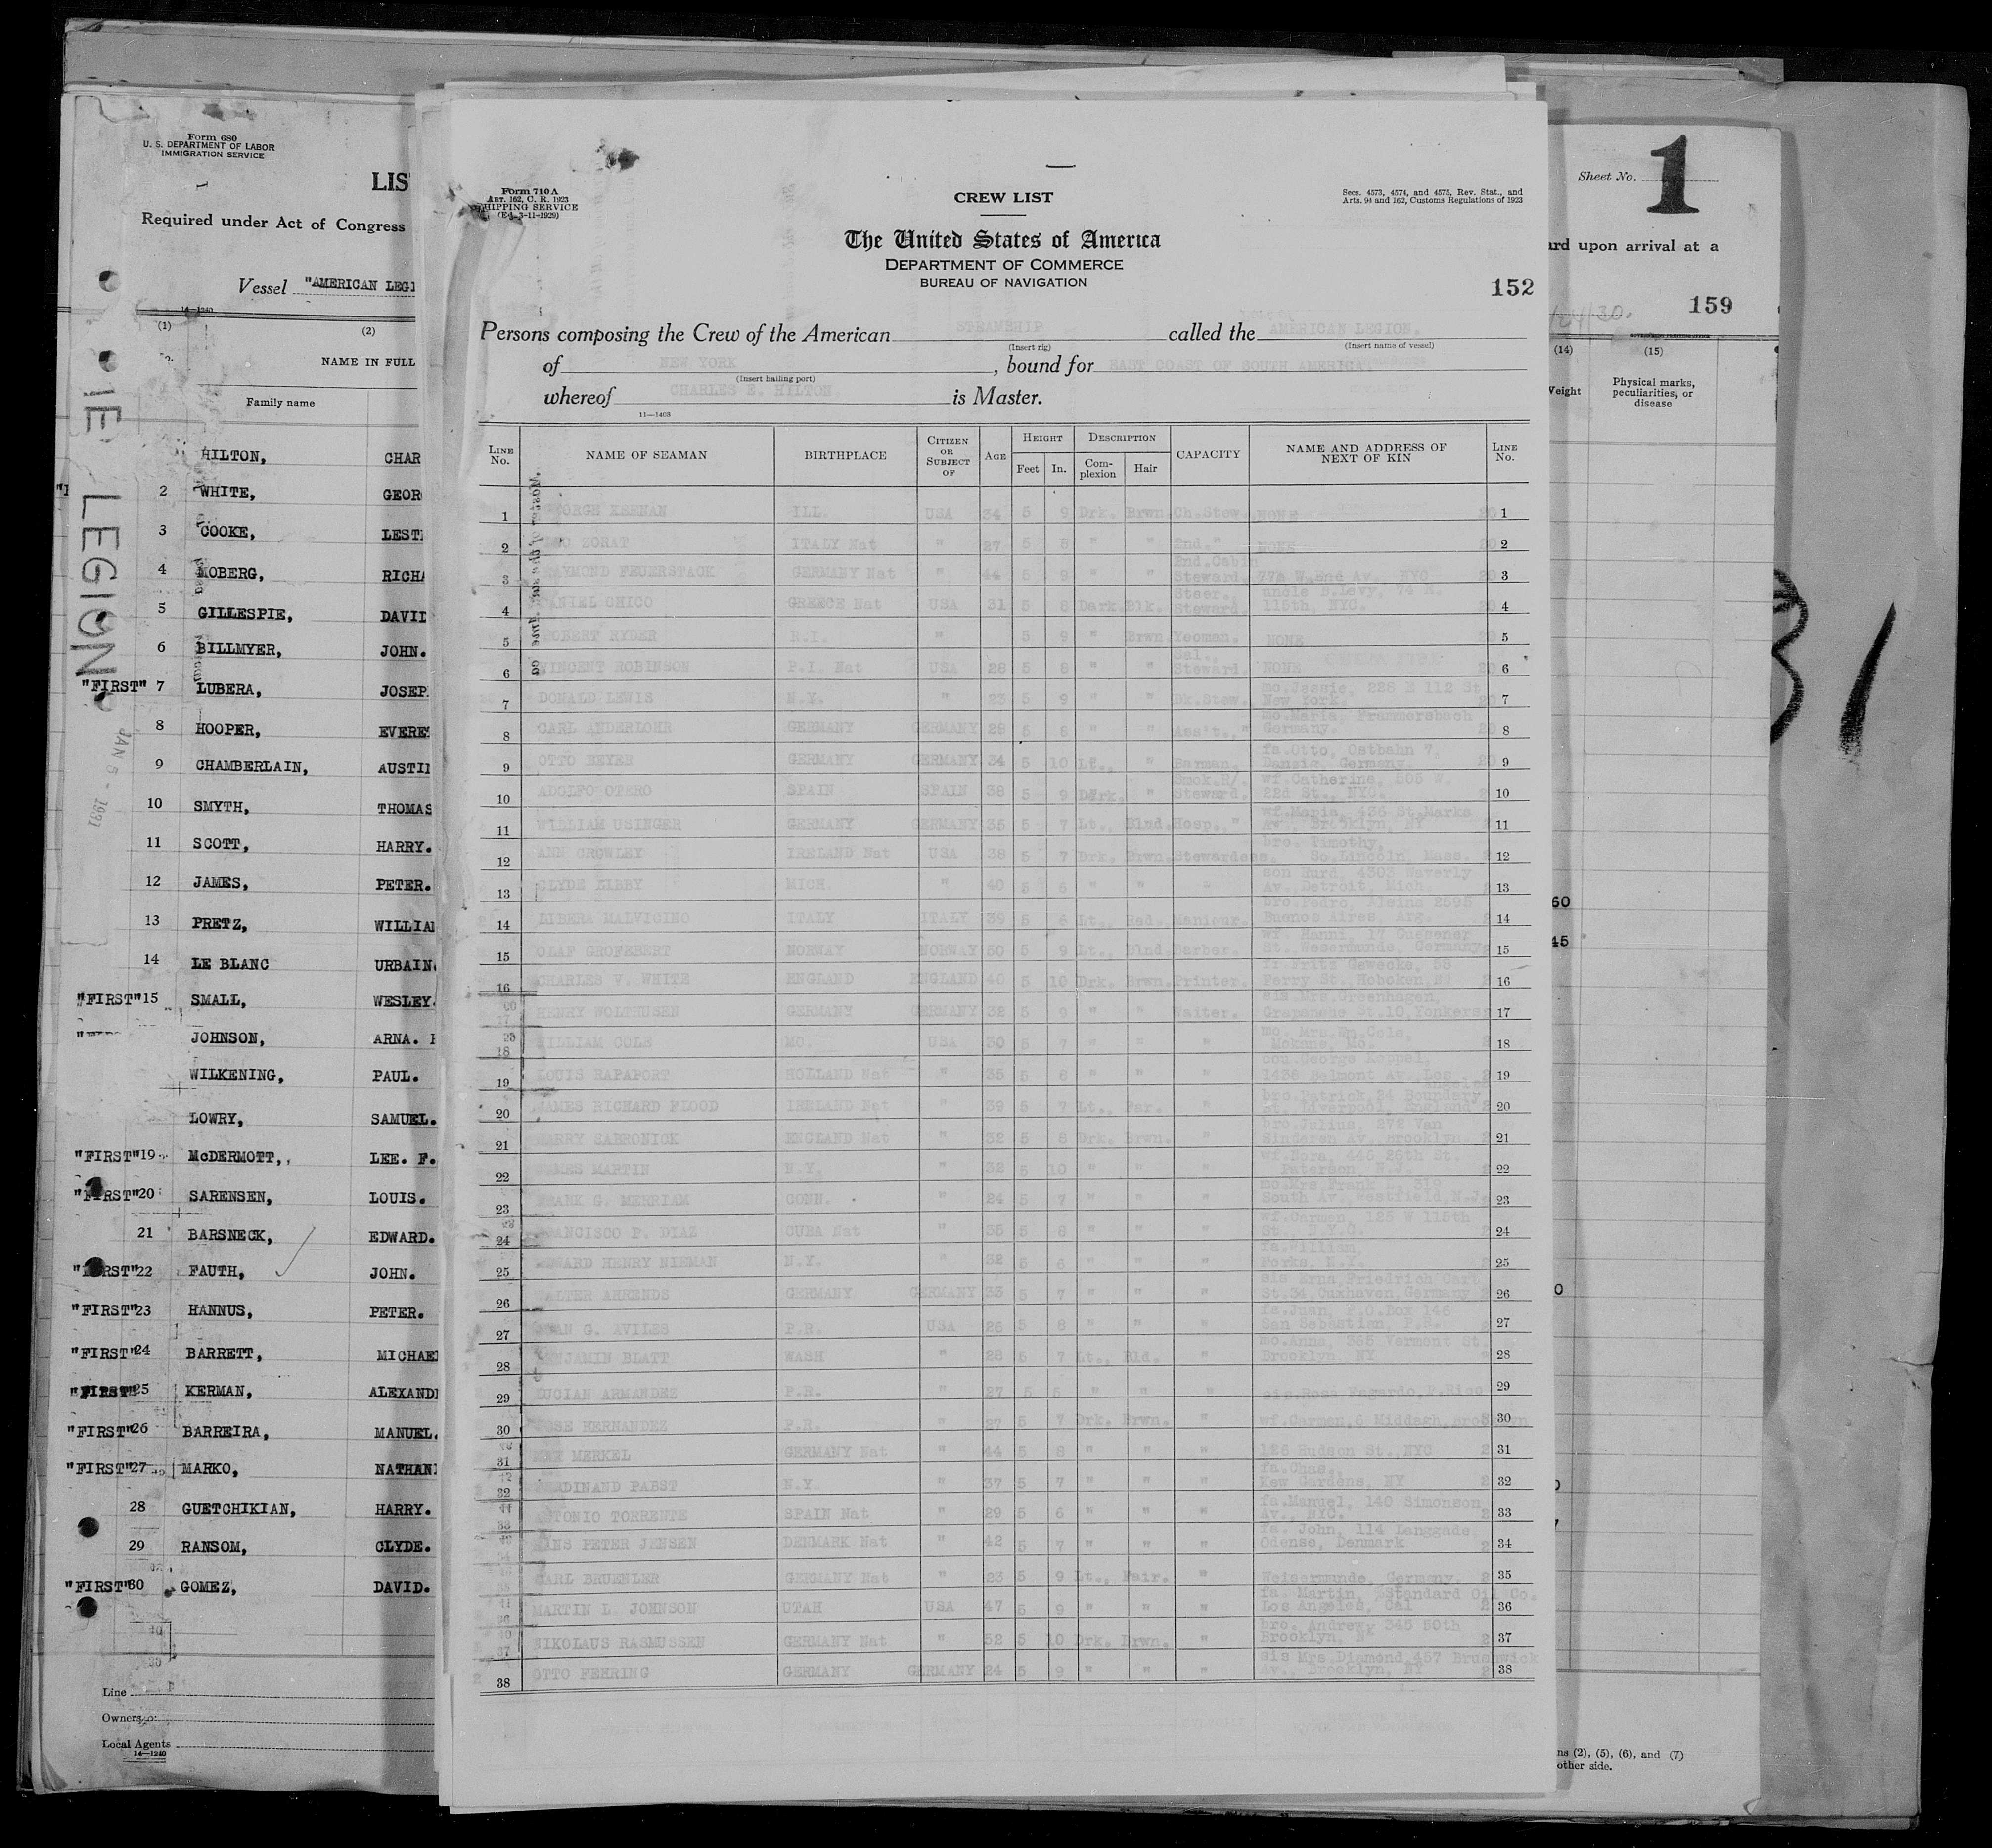 Form 680
U. S. DEPARTMENT OF LABOR
IMMIGRATION SERVICE
LIS
Required under Act of Congress
Vessel "AMERICAN LEGI
14—1240
(1)
(2)
NAME IN FULL
Family name
HILTON, CHAR
2 WHITE, GEOR
3 COOKE, LEST
4 MOBERG, RICHA
5 GILLESPIE, DAVID
6 BILLMYER, JOHN.
"FIRST" 7 LUBERA, JOSEP
8 HOOPER, EVERE
9 CHAMBERLAIN, AUSTI
10 SMYTH, THOMAS
11 SCOTT, HARRY.
12 JAMES, PETER.
13 PRETZ, WILLIA
14 LE BLANC URBAIN.
"FIRST"15 SMALL, WESLEY.
JOHNSON, ARNA.
WILKENING, PAUL.
LOWRY, SAMUEL.
"FIRST"19 McDERMOTT, LEE. F.
"FIRST"20 SARENSEN, LOUIS.
21 BARSNECK, EDWARD.
"FIRST"22 FAUTH, JOHN.
"FIRST"23 HANNUS, PETER.
"FIRST"24 BARRETT, MICHAE
"FIRST"25 KERMAN, ALEXAND
"FIRST"26 BARREIRA, MANUEL.
"FIRST"27 MARKO, NATHAN
28 GUETCHIKIAN, HARRY.
29 RANSOM, CLYDE.
"FIRST"30 GOMEZ, DAVID.
Line
Owners
Local Agents
14—1240
LEGION
JAN 5 - 1931
Form 710 A
ART. 162, C. R. 1923
SHIPPING SERVICE
(Ed. 3-11-1929)
CREW LIST
Secs. 4573, 4574, and 4575, Rev. Stat., and
Arts. 94 and 162, Customs Regulations of 1923
The United States of America
DEPARTMENT OF COMMERCE
BUREAU OF NAVIGATION
152
Persons composing the Crew of the American STEAMSHIP called the AMERICAN LEGION.
(Insert rig) (Insert name of vessel)
of NEW YORK, bound for EAST COAST OF SOUTH AMERICA.
(Insert hailing port)
whereof CHARLES E. HILTON is Master.
11—1408
LINE No. NAME OF SEAMAN BIRTHPLACE CITIZEN OR SUBJECT OF AGE HEIGHT Feet In. DESCRIPTION Complexion Hair CAPACITY NAME AND ADDRESS OF NEXT OF KIN LINE No.
1 GEORGE KEENAN ILL. USA 34 5 9 Drk. Brwn. Ch.Stew. NONE 1
2 ZORAT ITALY Nat " 27 5 8 " " 2nd. " NONE 2
3 RAYMOND FEUERSTACK GERMANY Nat " 44 5 9 " " 2nd.Cabin Steward. W.End Av., NYC 3
4 DANIEL CHICO GREECE Nat USA 31 5 8 Dark. Blk. Steer. Steward. uncle B.Levy, 74 E. 115th, NYC. 4
5 ROBERT RYDER R.I. " 5 9 " Brwn Yeoman. NONE 5
6 VINCENT ROBINSON P.I. Nat USA 28 5 8 " " Sal., Steward. NONE 6
7 DONALD LEWIS N.Y. " 23 5 9 " Bk.Stew. mo.Jessie, 228 E 112 St New York. 7
8 CARL ANDERLOHR GERMANY GERMANY 29 5 6 " " Assit.," mo.Maria, Frammersbach Germany. 8
9 OTTO BEYER GERMANY GERMANY 34 5 10 Lt., " Barman. fa.Otto, Ostbahn 7, Danzig, Germany. 9
10 ADOLFO OTERO SPAIN SPAIN 38 5 9 Dark. " Smok.R/. Steward. wf.Catherine, 505 W. 22d St., NYC. 10
11 WILLIAM USINGER GERMANY GERMANY 35 5 7 Lt., Blnd. Hosp., " wf.Maria, 436 St.Marks Av., Brooklyn, NY 11
12 ANN CROWLEY IRELAND Nat USA 38 5 7 Drk. Brwn. Stewardess. bro. Timothy, So.Lincoln, Mass. 12
13 CLYDE LIBBY MICH " 40 5 6 " " " son Hurd, 4303 Waverly Av., Detroit, Mich. 13
14 LIBERA MALVICINO ITALY ITALY 39 5 6 Lt., Red. Manicur. bro.Pedro, Alsina 2595 Buenos Aires, Arg. 14
15 OLAF GROFEBERT NORWAY NORWAY 50 5 9 Lt., Blnd. Barber. wf. Henni, 17 St. Wesermunde, Germany 15
16 CHARLES V. WHITE ENGLAND ENGLAND 40 5 10 Drk. Brwn. Printer. Fritz Gewecke, 58 Ferry St., Hoboken,NJ 16
17 HENRY WOLTHUSEN GERMANY GERMANY 32 5 9 " " Waiter. sis.Mrs.Greenhagen, St.10,Yonkers 17
18 WILLIAM COLE MO. USA 30 5 7 " " " mo. Mrs.Wm.Cole, Mokane, Mo. 18
19 LOUIS RAPAPORT HOLLAND Nat " 35 5 6 " " " cou.George Koppel, 1436 Belmont Av. Los Angeles 19
20 JAMES RICHARD FLOOD IRELAND Nat " 39 5 7 Lt., Far. " bro.Patrick,24 Boundary St., Liverpool, England 20
21 HARRY SABRONICK ENGLAND Nat " 32 5 6 Drk. Brwn. " bro.Julius, 272 Van Sinderen Av. Brooklyn. 21
22 JAMES MARTIN N.Y. " 32 5 10 " " " wf.Nora, 445 26th St. Paterson, N.J. 22
23 FRANK G. MERRIAM CONN. " 24 5 7 " " " mo.Mrs Frank E, 319 South Av.,Westfield,N.J. 23
24 FRANCISCO P. DIAZ CUBA Nat " 35 5 8 " " " wf.Carmen, 125 W 115th St., N.Y.C. 24
25 EDWARD HENRY NIEMAN N.Y. " 32 5 6 " " " fa.William, Forks, N.Y. 25
26 WALTER AHRENDS GERMANY GERMANY 33 5 7 " " " sis Erna,Friedrich Carl St.34,Cuxhaven,Germany 26
27 JUAN G. AVILES P.R. USA 26 5 8 " " " fa.Juan, P.O.Box 146 San Sebastian, P.R. 27
28 BENJAMIN BLATT WASH " 28 5 7 Lt., Bld. " mo.Anna, 365 Vermont St. Brooklyn, NY 28
29 LUCIAN ARMANDEZ P.R. " 27 5 5 " " " sis.Rosa Fagardo,P.Rico 29
30 JOSE HERNANDEZ P.R. " 27 5 7 Drk. Brwn. " wf.Carmen,6 Middagh,Brooklyn 30
31 MAX MERKEL GERMANY Nat " 44 5 8 " " " 126 Hudson St.,NYC 31
32 FERDINAND PABST N.Y. " 37 5 7 " " " fa.Chas., Kew Gardens, NY 32
33 ANTONIO TORRENTE SPAIN Nat " 29 5 6 " " " fa.Manuel, 140 Simonson Av., NYC. 33
34 HANS PETER JENSEN DENMARK Nat " 42 5 7 " " " fa. John, 114 Langgade, Odense, Denmark 34
35 CARL BRUEHLER GERMANY Nat " 23 5 9 Lt., Fair. " Weisermunde, Germany. 35
36 MARTIN L. JOHNSON UTAH USA 47 5 9 " " " fa. Martin, Standard Oil Co. Los Angeles, Cal 36
37 NIKOLAUS RASMUSSEN GERMANY Nat " 52 5 10 Drk. Brwn. " bro. Andrew, 345 50th Brooklyn, NY 37
38 OTTO FEHRING GERMANY GERMANY 24 5 9 " " " sis Mrs.Diamond,457 Brunswick Av., Brooklyn, NY 38
Sheet No. 1
ard upon arrival at a
159
(14)
(15)
Weight
Physical marks, peculiarities, or disease
60
45
ns (2), (5), (6), and (7)
other side.